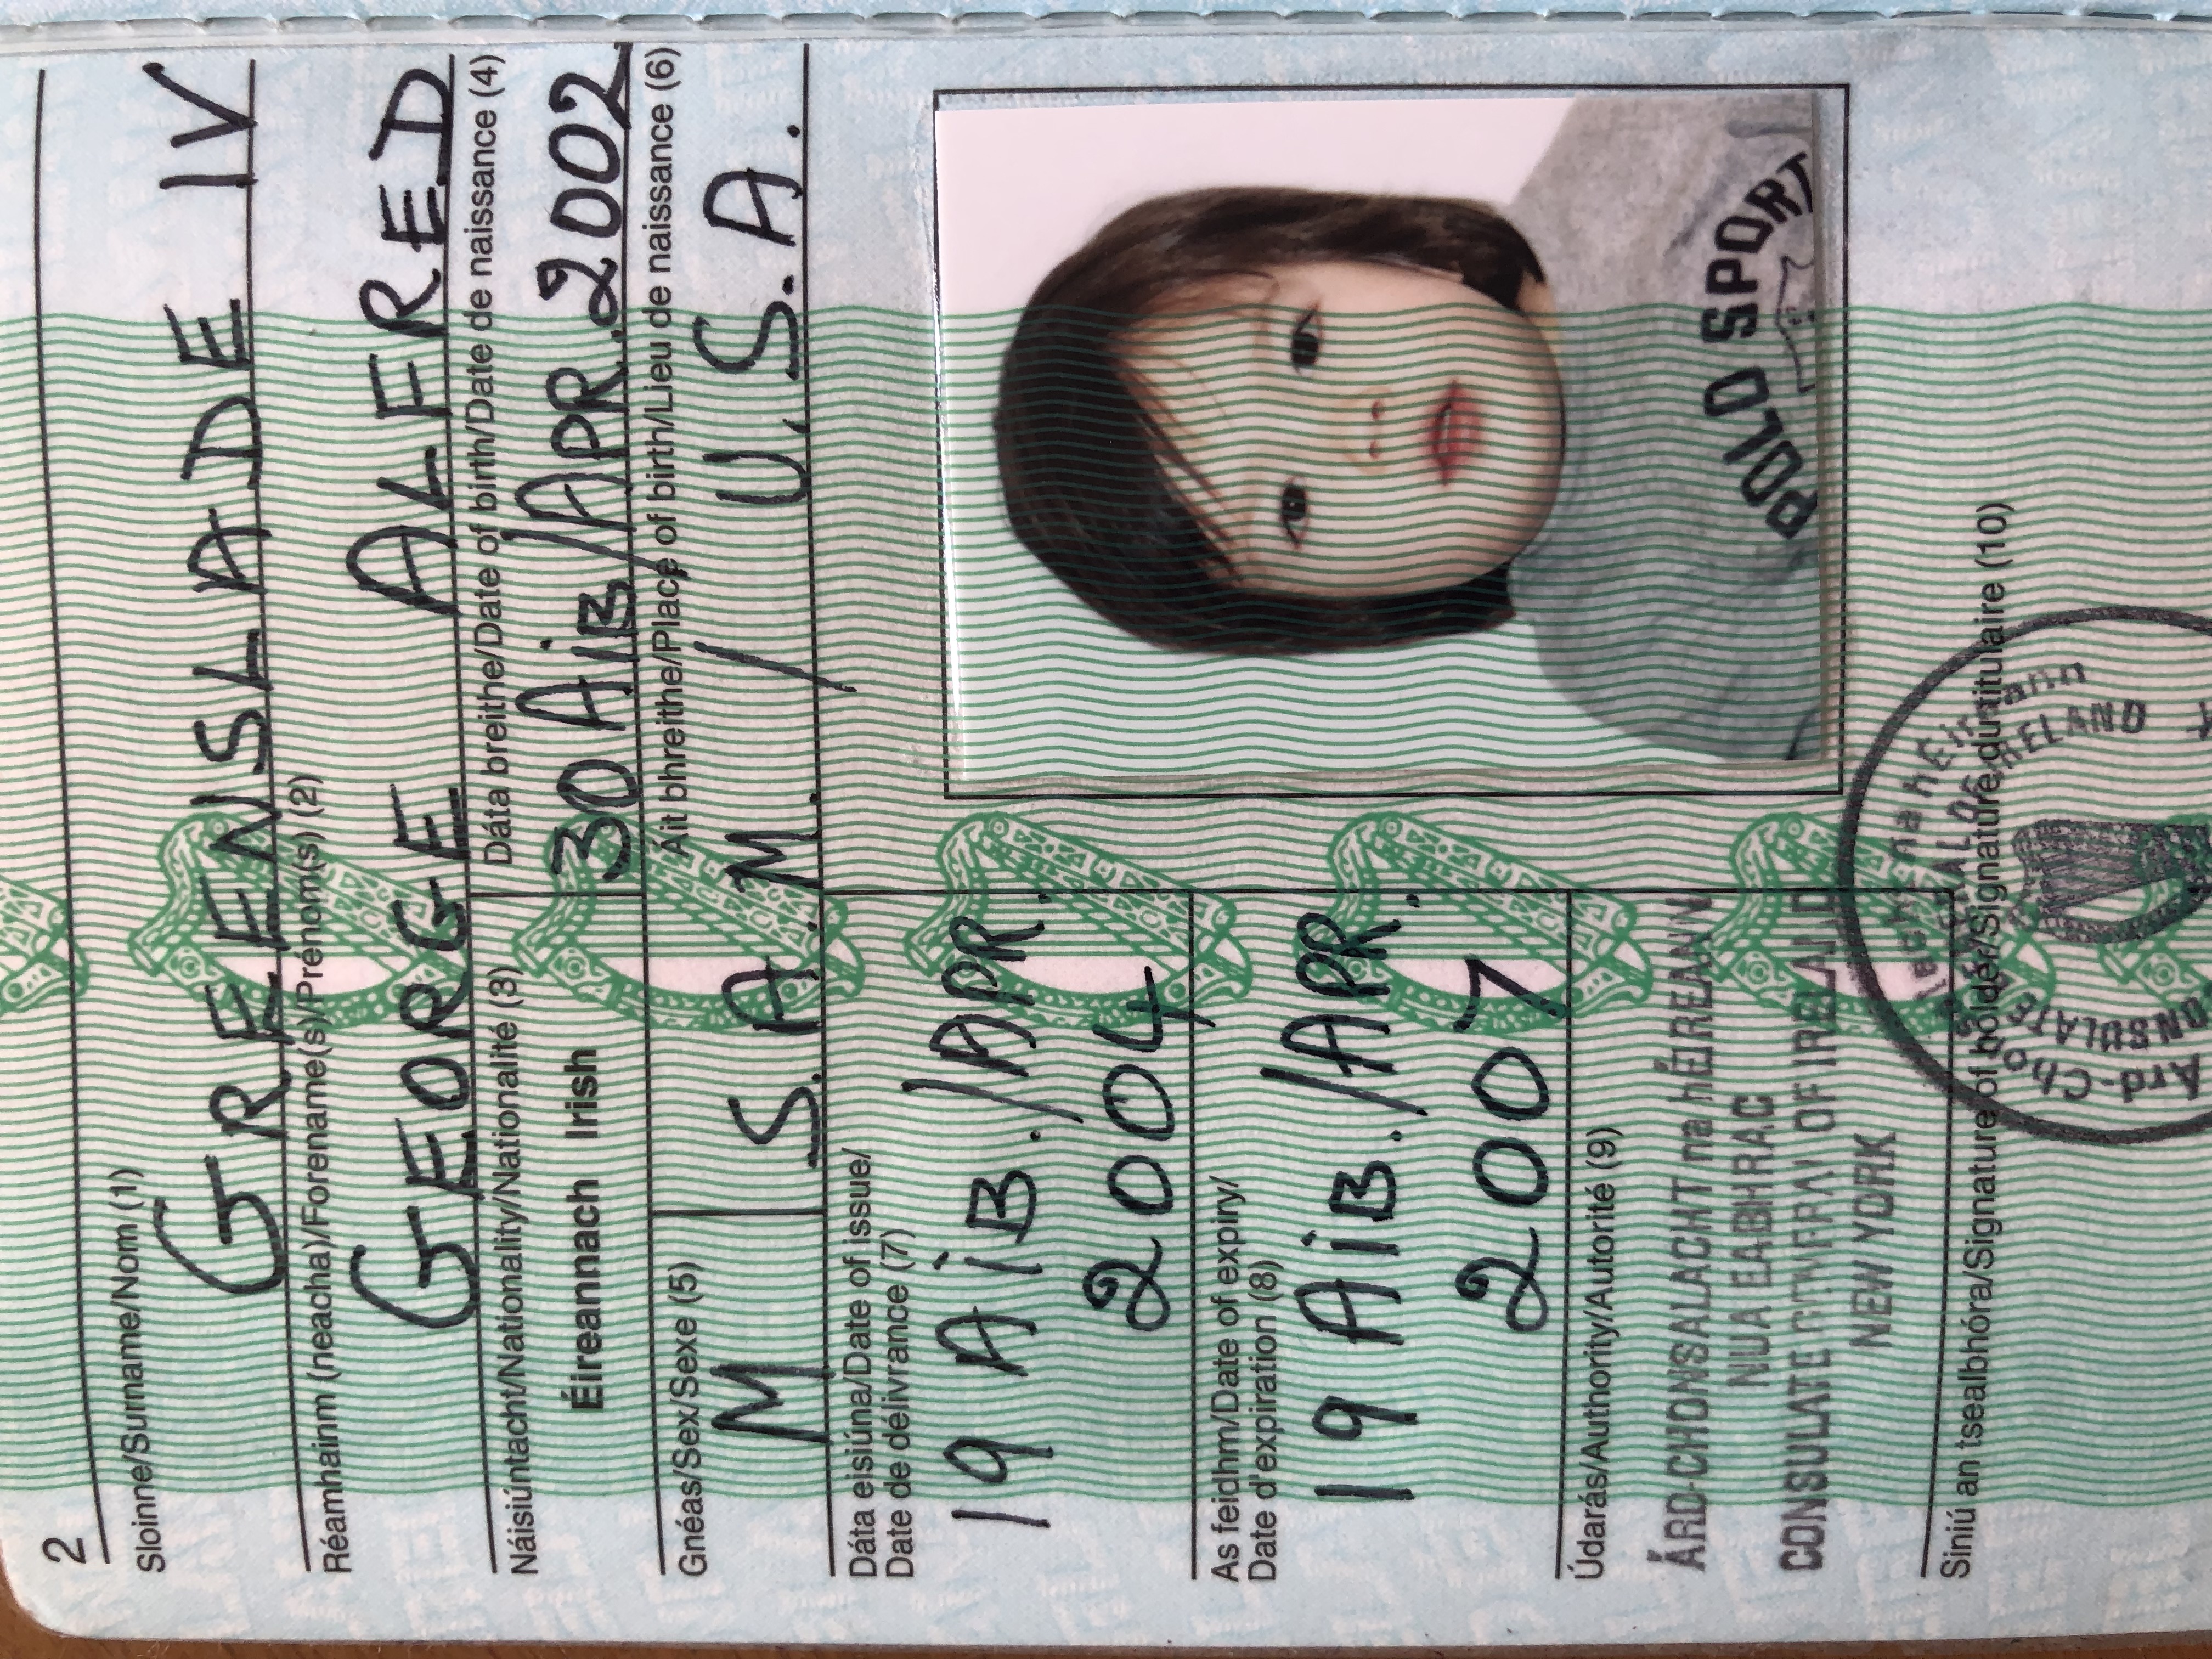 2
Sloinne/Surname/Nom (1)
GREENSLADE IV
Réamhainm (neacha)/Forename(s)/Prénom(s) (2)
GEORGE ALFRED
Náisiúntacht/Nationality/Nationalité (3)
Éireannach Irish
Dáta breithe/Date of birth/Date de naissance (4)
30 AiB/APR. 2002
Gnéas/Sex/Sexe (5)
M
Áit bhreithe/Place of birth/Lieu de naissance (6)
S.A.M. / U.S.A.
Dáta eisiúna/Date of issue/
Date de délivrance (7)
19 AiB./APR.
2004
As feidhm/Date of expiry/
Date d'expiration (8)
19 AiB./APR.
2007
Údarás/Authority/Autorité (9)
ÁRD-CHONSALACHT na hÉIREANN
NUA EABHRAC
CONSULATE GENERAL OF IRELAND
NEW YORK
POLO SPORT
Siniú an tsealbhóra/Signature of holder/Signature du titulaire (10)
Ard-Chonsalacht na hÉireann
CONSULATE GENERAL OF IRELAND